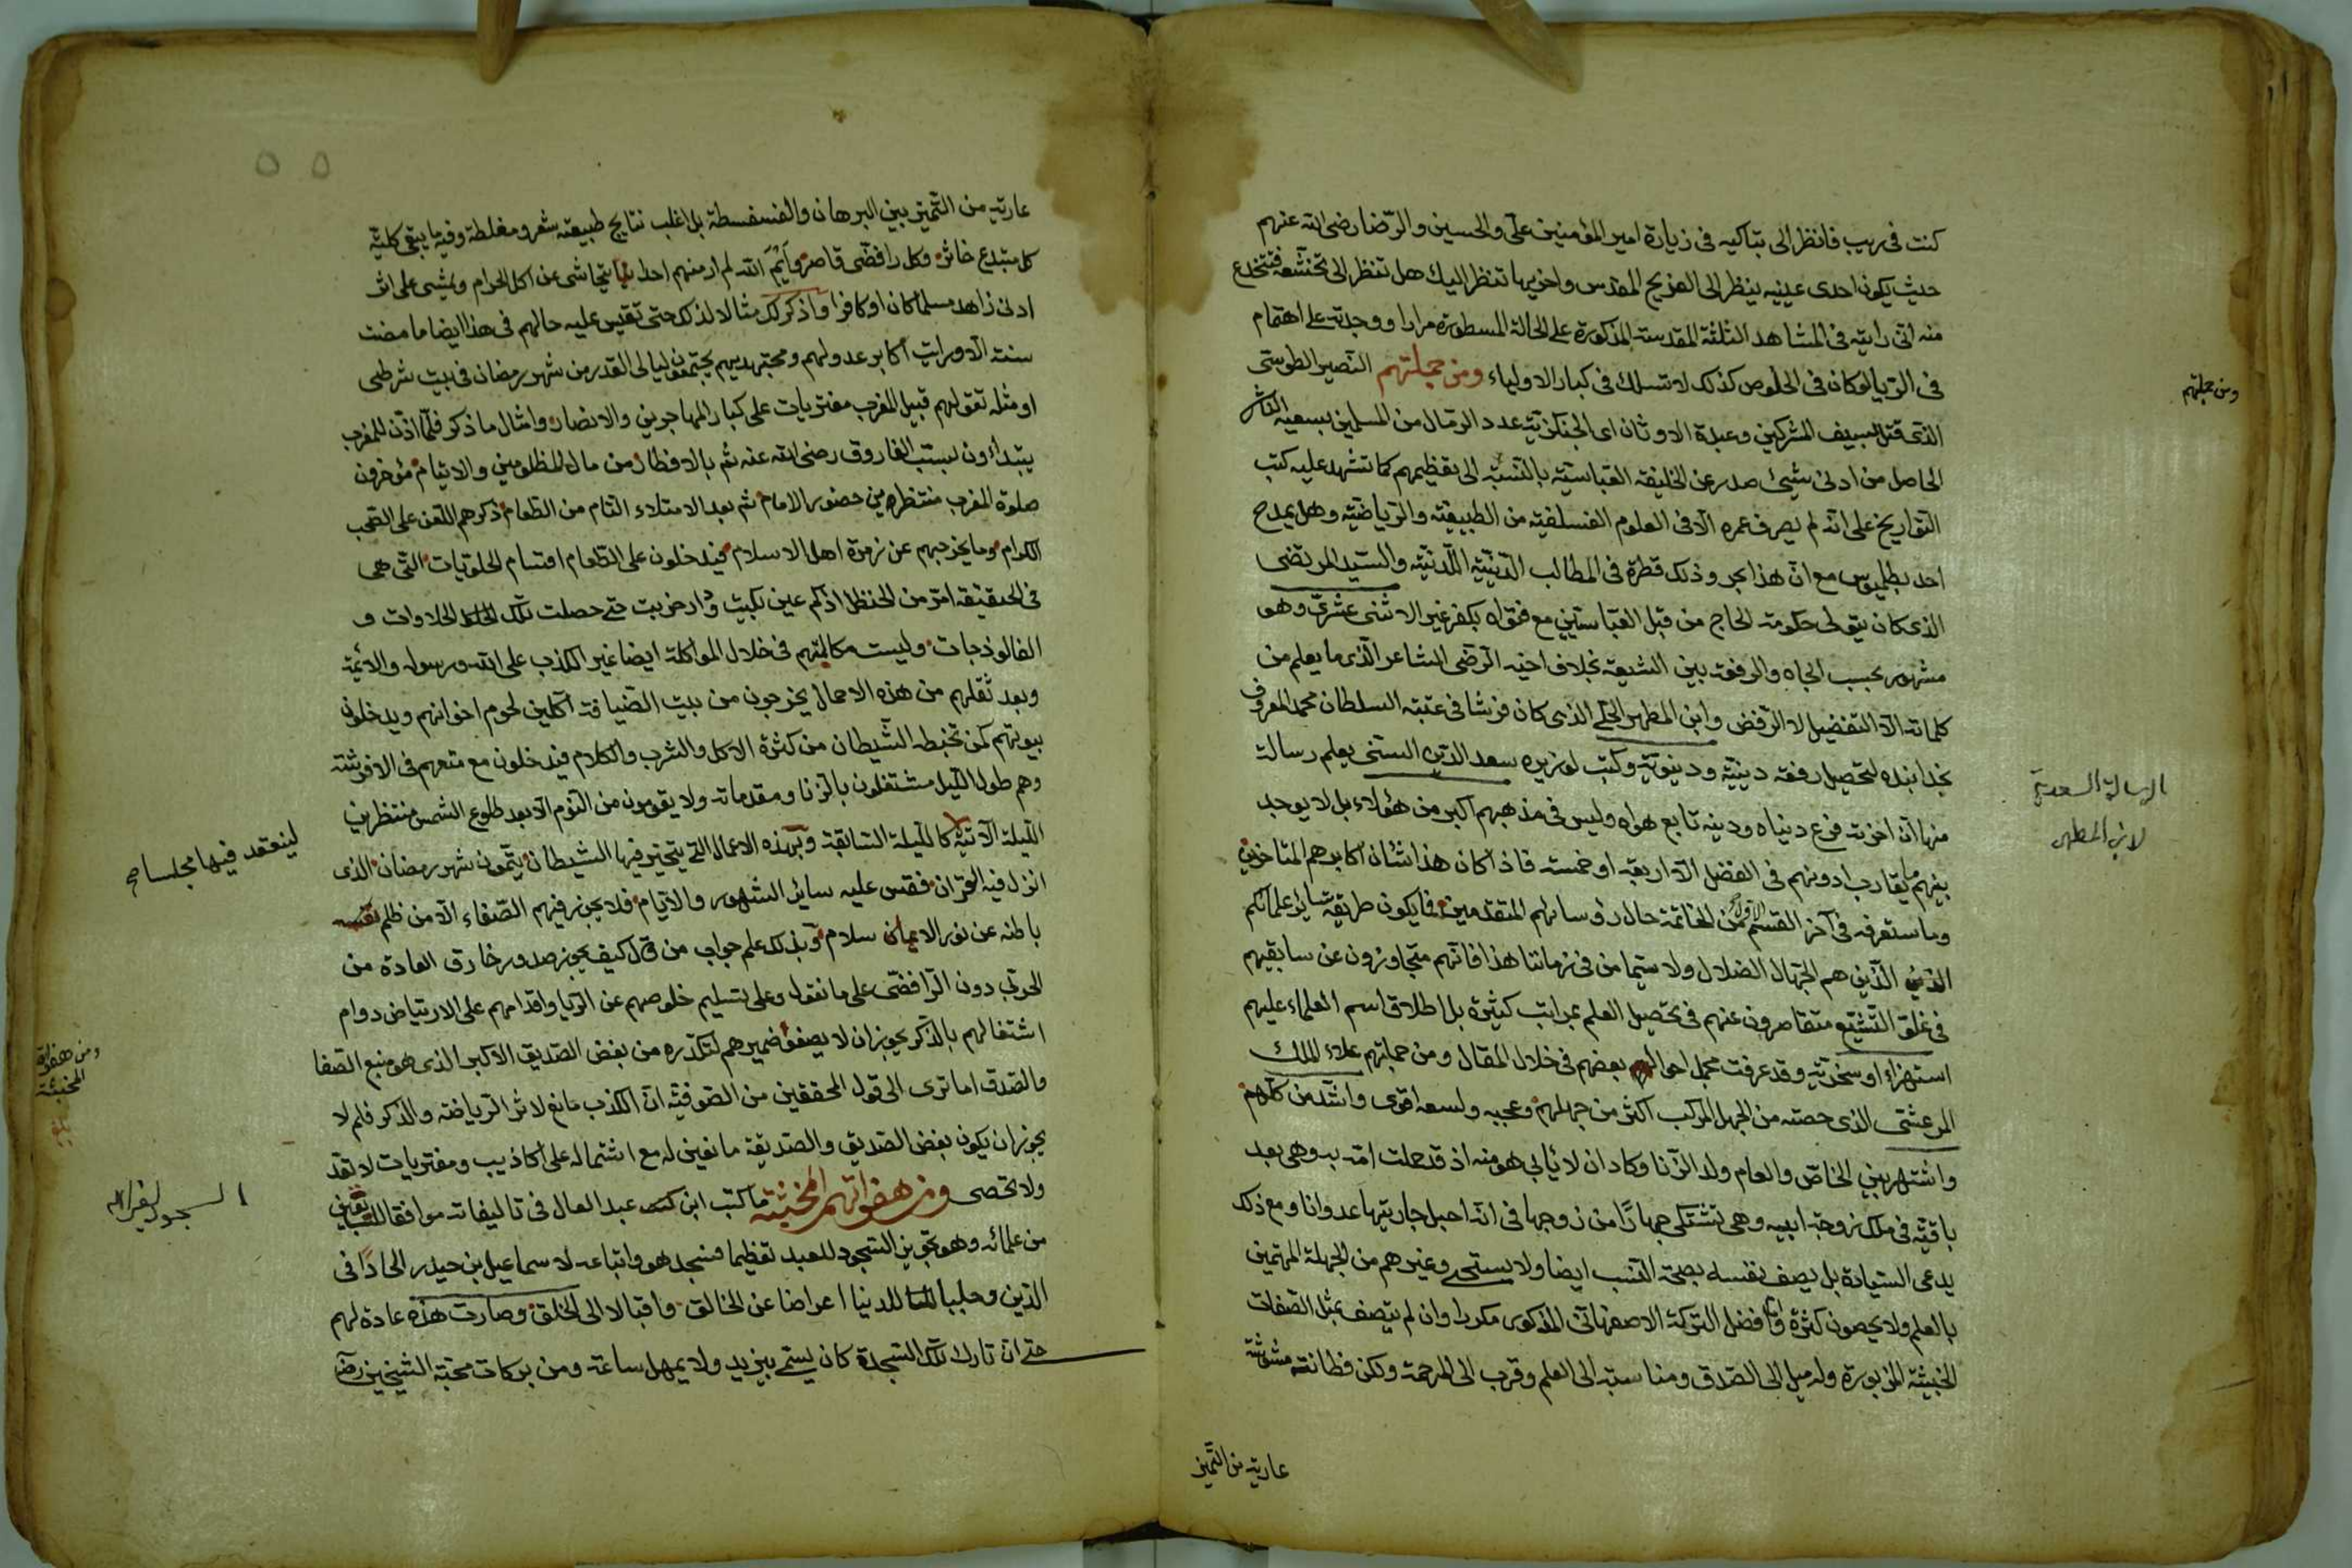 كنت في ريب فانظر الى تباكيه في زيارة امير المؤمنين علي والحسين والرضا رضى الله عنهم
حيث يكون احدى عينيه ينظر الى الضريح المقدس واخريها تنظر اليك هل تنظر الى تخشعه فتنخدع
منه انى رايته في المشاهد الثلثة المقدسة المذكورة على الحالة المسطورة مرارا ووجدته على اهتمام
في الريا لو كان في الخلوص كذلك لانسلك في كبار الاولياء ومن جملتهم النصير الطوسى
الذى قتل بسيف المشركين وعبدة الاوثان اى الجنكزية عدد الرمال من المسلمين بسعيه الناشى
الحاصل من ادنى شيئ صدر عن الخليفة العباسية بالنسبة الى تعظيمهم كما تشهد عليه كتب
التواريخ على انه لم يصرف عمره الا في العلوم الفلسفية من الطبيعية والرياضية وهل يمدح
احد بطليوس مع ان هذا بحر وذلك قطرة في المطالب الدينية اللدنية والسيد المرتضى
الذى كان يتولى حكومة الحاج من قبل العباسيين مع قوله بكفر غير الاثنى عشرى وهو
مشهور بحسب الجاه والرفعة بين الشيعة بخلاف اخيه الرضى الشاعر الذى ما يعلم من
كلماته الا التفضيل لا الرفض وابن المطهر الحلى الذى كان فرشا في عتبة السلطان محمد المعروف
بخدابنده لتحصيل رفعة دينية ودنيوية وكتب لوزيره سعد الدين السنى يعلم رسالة
منها ان اخرته فرع دنياه ودينه تابع هواه وليس في مذهبهم اكبر من هؤلاء بل لا يوجد
بينهم ما يقارب ادونهم في الفضل الا اربعة او خمسة فاذا كان هذا شان اكابرهم المتاخرين
وما ستعرفه في آخر القسم الاول من الخاتمة حال رؤسائهم المتقدمين فما يكون طريقة سائر علمائكم
الذين هم الجهال الضلال ولا سيما من في زماننا هذا فانهم متجاوزون عن سابقيهم
في غلو التشيع متقاصرون عنهم في تحصيل العلم بمراتب كثيرة بل اطلاق اسم العلماء عليهم
استهزاء او سخرية وقد عرفت مجمل احوال بعضهم في خلال المقال ومن جملتهم علاء الملك
المرعشى الذى حصته من الجهل المركب اكثر من جهلهم وعجبه ولسعه اقوى واشد من كلهم
واشتهر بين الخاص والعام ولد الزنا وكاد ان لا يابى هو منه اذ قد حملت امه به وهى بعد
باقية في ملك زوجة ابيه وهى تشتكى جهارا من زوجها في انه احبل جاريتها عدوانا ومع ذلك
يدعى السيادة بل يصف نفسه بصحة النسب ايضا ولا يستحى وغيرهم من الجهلة المتهمين
بالعلم ولا يحصون كثرة واما افضل التركة الاصفهانى المذكور مكررا وان لم يتصف بمثل الصفات
الخبيثة المزبورة وله ميل الى الصدق ومناسبة الى العلم وقرب الى المرحمة ولكن فطانته مشوشة
عارية من التميز
ومن جملتهم
الرسالة السعدية
لابن المطهر
عارية من التميز بين البرهان والفسفسطة بل اغلب نتايج طبيعته شعر ومغلطة وفيه ما يبقى كلية
كل مبتدع خاثر وكل رافضى قاصر وايم الله لم ار منهم احدا يتحاشى عن اكل الحرام ويمشى على اثر
ادنى زاهد مسلما كان او كافرا واذكر لك مثالا لذلك حتى تقيس عليه حالهم في هذا ايضا ما مضت
سنة الا ورايت اكابر عدولهم ومجتهديهم يجتمعون ليالى القدر من شهر رمضان في بيت شرطى
او مثله تقولهم قبيل المغرب مفتريات على كبار المهاجرين والانصار وامثال ما ذكر فلما اذن للمغرب
يبتداءون بسب الفاروق رضى الله عنه ثم بالافطار من مال المظلومين والايتام مؤخرون
صلوة المغرب منتظرين حضور الامام ثم بعد الامتلاء التام من الطعام ذكرهم اللعن على الصحب
الكرام وما يخرجهم عن زمرة اهل الاسلام فيدخلون على الطعام اقسام الحلويات التى هى
في الحقيقة امر من الحنظل اذ كم عين بكيت ودار خربت حتى حصلت تلك الحلاوات و
الفالوذجات وليست مكالمتهم في خلال المواكلة ايضا غير الكذب على الله ورسوله والائمة
وبعد ثقلهم من هذه الاحمال يخرجون من بيت الضيافة آكلين لحوم اخوانهم ويدخلون
بيوتهم كمن تخبطه الشيطان من كثرة الاكل والشرب والكلام فيدخلون مع متعهم في الافرشة
وهم طول الليل مشتغلون بالزنا ومقدماته ولا يقومون من النوم الا بعد طلوع الشمس منتظرين
الليلة الآتية كالليلة السابقة وبهذه الاعمال التى يتحير فيها الشيطان يتمون شهر رمضان الذى
انزل فيه القرآن فقس عليه سائر الشهور والايام فلا يجوز فيهم الصفاء الا من ظلم نفسه
باطنه عن نور الايمان سلام وبذلك علم جواب من قال كيف يجوز صدور خارق العادة من
الحربى دون الرافضى على ما نقول وعلى تسليم خلوصهم عن الريا واقدامهم على الارتياض دوام
اشتغالهم بالذكر يجوز ان لا يصفو ضميرهم لتكدره من بغض الصديق الاكبر الذى هو منبع الصفا
والصدق اما ترى الى قول المحققين من الصوفية ان الكذب مانع لاثر الرياضة والذكر فلم لا
يجوز ان يكون بغض الصديق والصديقة مانعين له مع اشتماله على اكاذيب ومفتريات لا تعد
ولا تحصى ومن هفواتهم المخبثة ما كتب ابن عبد العال في تاليفاته موافقا للسابقين
من علمائه وهو تجويز السجود للعبد تعظيما فسجد هو واتباعه لاسماعيل بن حيدر الحادا في
الدين وجلبا للدنيا اعراضا عن الخالق واقبالا الى الخلق وصارت هذه عادة لهم
حتى ان تارك تلك السجدة كان يسمى بيزيد ولا يمهل ساعة ومن بركات محبة الشيخين رضى
لينعقد فيها مجلسا صح
ومن هفواتهم
المخبثة
السجود لغير الله